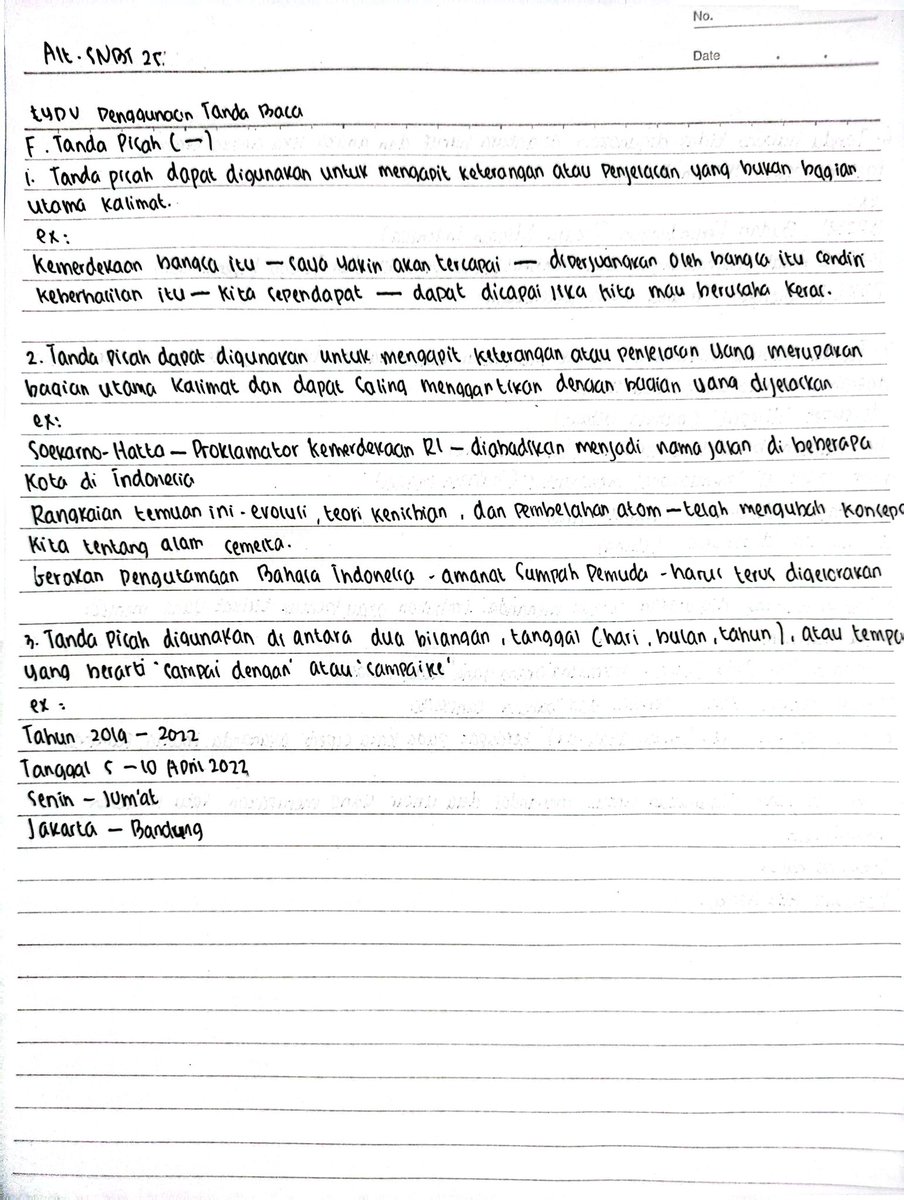 No.
Alt. SNBT 25.
Date . .
EYD V Penggunaan Tanda Baca
F. Tanda Pisah (—)
1. Tanda pisah dapat digunakan untuk mengapit keterangan atau Penjelasan yang bukan bagian
utama kalimat.
ex:
Kemerdekaan bangsa itu — saya yakin akan tercapai — diperjuangkan oleh bangsa itu sendiri
Keberhasilan itu — kita sependapat — dapat dicapai jika kita mau berusaha keras.
2. Tanda Pisah dapat digunakan untuk mengapit keterangan atau penjelasan yang merupakan
bagian utama kalimat dan dapat saling menggantikan dengan bagian yang dijelaskan
ex:
Soekarno-Hatta — Proklamator Kemerdekaan RI — diabadikan menjadi nama jalan di beberapa
Kota di Indonesia
Rangkaian temuan ini - evolusi, teori kenisbian, dan Pembelahan atom — telah mengubah konsep
Kita tentang alam semesta.
Gerakan Pengutamaan Bahasa Indonesia - amanat Sumpah Pemuda - harus terus digelorakan
3. Tanda Pisah digunakan di antara dua bilangan, tanggal (hari, bulan, tahun), atau tempa
yang berarti 'sampai dengan' atau 'sampai ke'
ex :
Tahun 2019 — 2022
Tanggal 5 — 10 April 2022
Senin — Jum'at
Jakarta — Bandung